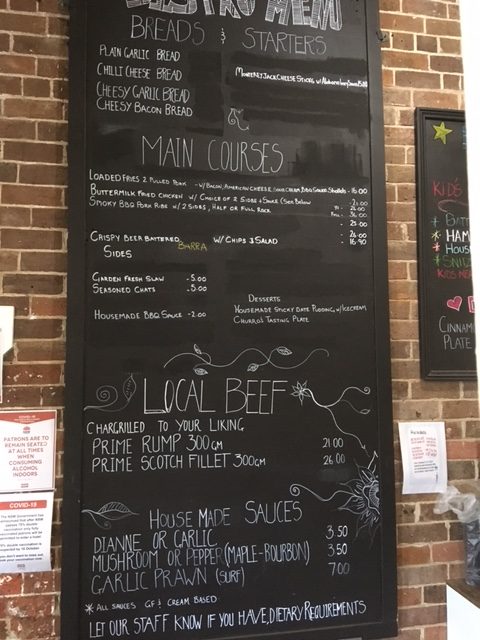 BISTRO MENU
BREADS & STARTERS
PLAIN GARLIC BREAD
CHILLI CHEESE BREAD
MONTEREY JACK CHEESE STICKS W/
CHEESY GARLIC BREAD
CHEESY BACON BREAD
MAIN COURSES
LOADED FRIES 2 PULLED PORK - W/ BACON, AMERICAN CHEESE, SOUR CREAM, BBQ SAUCE, SHALLOTS - 16.00
BUTTERMILK FRIED CHICKEN W/ CHOICE OF 2 SIDES + SAUCE (SEE BELOW - 21.00
SMOKY BBQ PORK RIBS W/ 2 SIDES, HALF OR FULL RACK
- 25.00
CRISPY BEER BATTERED BARRA W/ CHIPS & SALAD - 26.00
- 16.90
SIDES
GARDEN FRESH SLAW - 5.00
SEASONED CHATS - 5.00
HOUSEMADE BBQ SAUCE - 2.00
DESSERTS
HOUSEMADE STICKY DATE PUDDING, W/ ICECREAM
CHURROS TASTING PLATE
LOCAL BEEF
CHARGRILLED TO YOUR LIKING
PRIME RUMP 300GM 21.00
PRIME SCOTCH FILLET 300GM 26.00
HOUSE MADE SAUCES
DIANNE OR GARLIC 3.50
MUSHROOM OR PEPPER (MAPLE-BOURBON) 3.50
GARLIC PRAWN (SURF) 7.00
* ALL SAUCES GF & CREAM BASED
LET OUR STAFF KNOW IF YOU HAVE DIETARY REQUIREMENTS
COVID-19
PATRONS ARE TO
REMAIN SEATED
AT ALL TIMES
WHEN
CONSUMING
ALCOHOL
INDOORS
COVID-19
KID'S
HAM
HOUS
KIDS MEA
CINNAM
PLATE